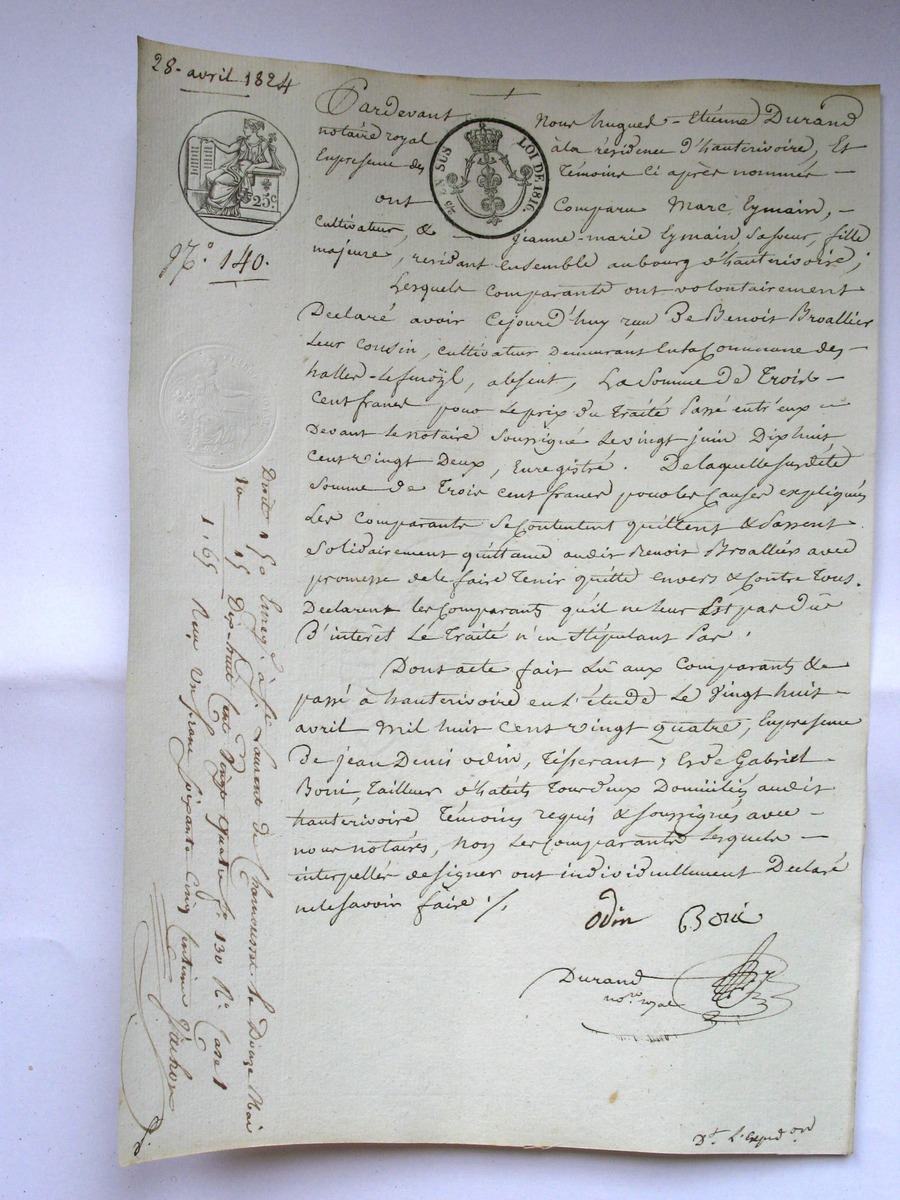 28 avril 1824
Pardevant Nous hugues-Etiénne Durand
notaire royal à la résidence D'hauterivoire, Et
En presence des Témoins Ci après nommés
ont Comparu Marc Eymain,
cultivateur, & jeanne-marie Eymain, sa sœur, fille
majeure, résidant ensemble au bourg d'hauterivoire;
Lesquels Comparants ont volontairement
Declaré avoir Cejourd'huy reçu De Benoit Broallier
leur cousin, cultivateur Demeurant En la Commune des
halles-, absent, La Somme De Trois
Cent francs pour Le prix du Traité Passé entr'eux
Devant le notaire Soussigné Le vingt juin Dix huit
Cent vingt Deux, Enregistré. De laquelle susdite
Somme de Trois cent francs pour les Causes expliquées
Les Comparants Se Contentent quittent & Passent
Solidairement quittance audit Benoit Broallier avec
promesse de le faire Tenir quitte envers & Contre Tous.
Declarent les Comparants qu'il ne leur Est pas Dû
D'intérêt Le Traité n'en Stipulant Pas.
Dont acte fait Lû aux Comparants &
passé à hauterivoire en l'étude Le Vingt huit
avril Mil huit Cent vingt quatre, En presence
De jean Denis odin, Tisserant, Et de Gabriel
Boui, Tailleur d'habits Tous deux Domiciliés audit
hauterivoire Témoins requis & soussignés avec
nous notaires, non Les Comparants Lesquels
interpellés de signer ont individuellement Declaré
ne le savoir faire ./.
odin
Durand
no.re royal
Dt. L'Expéd.on
25c.
SUS
LOI DE 1816.
N.o 140.
Droit 1 50 Enreg. à St Laurent de Chamousset le Douze Mai
10e 15 Dix-huit Cent Vingt quatre f.o 130 R.o Case 1
1,65 Reçu Un franc Soixante Cinq Centimes